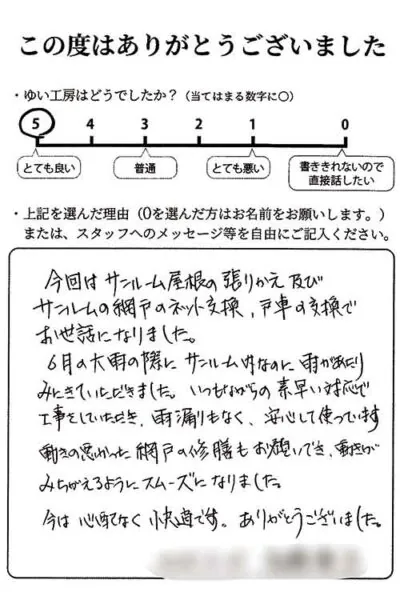 この度はありがとうございました
・ゆい工房はどうでしたか？（当てはまる数字に〇）
5 4 3 2 1 0
とても良い 普通 とても悪い 書ききれないので直接話したい
・上記を選んだ理由（0を選んだ方はお名前をお願いします。）
または、スタッフへのメッセージ等を自由にご記入ください。
今回は サンルーム屋根の張りかえ 及び
サンルームの網戸のネット交換、戸車の交換で
お世話になりました。
6月の大雨の際に サンルーム内なのに 雨があたり
みにきていただきました。いつもながらの 素早い対応で
工事をしていただき、雨漏りもなく、安心して使っています
動きの悪かった 網戸の修繕も お願いでき、動きが
みちがえるように スムーズに なりました。
今は 心配なく 快適です。ありがとうございました。